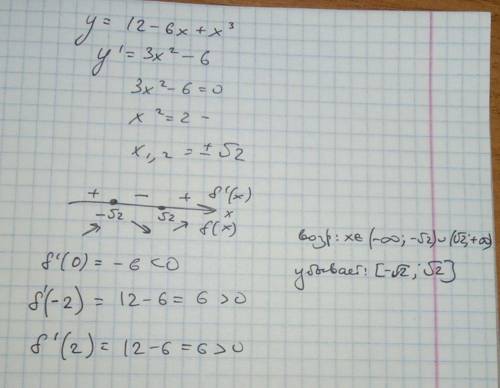 y = 12 - 6x + x³
y' = 3x² - 6
3x² - 6 = 0
x² = 2 -
x₁,₂ = ± √2
+ - + f'(x)
-√2 √2 x
f(x)
возр: x∈ (-∞; -√2)∪(√2; +∞)
убывает: [-√2; √2]
f'(0) = -6 < 0
f'(-2) = 12 - 6 = 6 > 0
f'(2) = 12 - 6 = 6 > 0